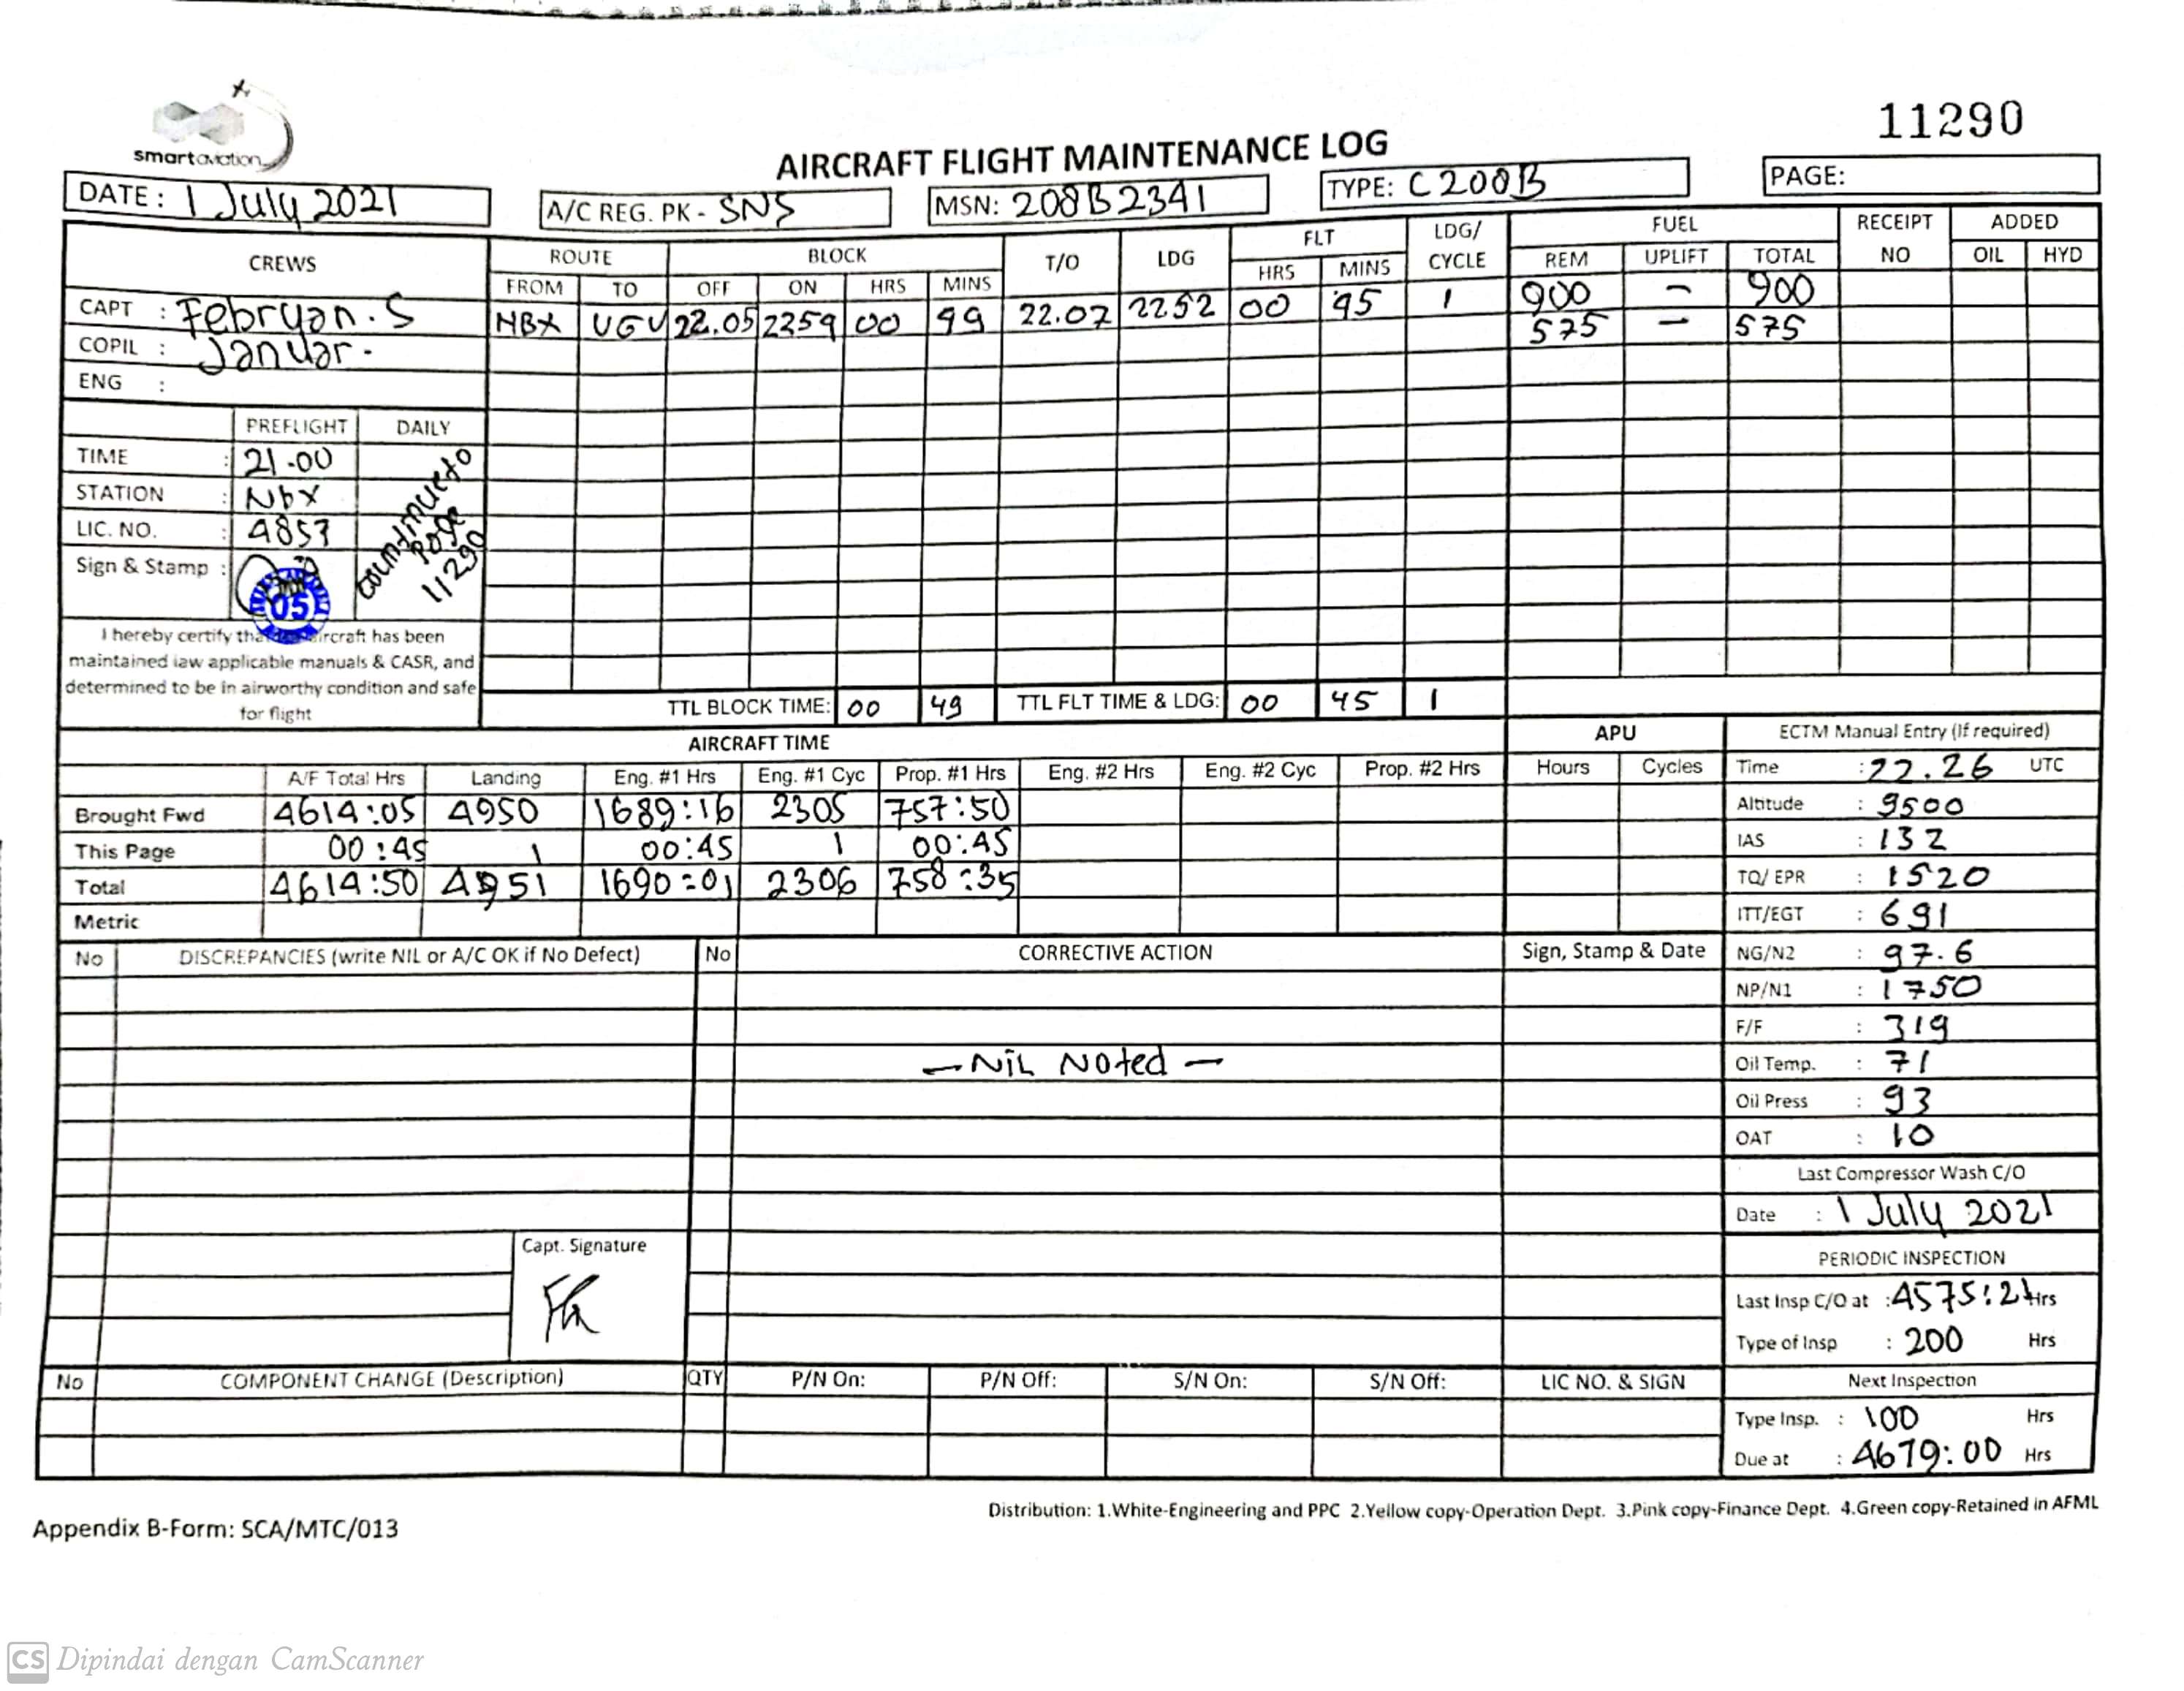 smartaviation
11290
AIRCRAFT FLIGHT MAINTENANCE LOG
DATE : 1 July 2021
A/C REG. PK - SNS
MSN: 208B2341
TYPE: C200B
PAGE:
CREWS
ROUTE BLOCK T/O LDG FLT LDG/ CYCLE FUEL RECEIPT NO ADDED
FROM TO OFF ON HRS MINS HRS MINS REM UPLIFT TOTAL OIL HYD
CAPT : Febryan.S
NBX UGU 22.05 2259 00 49 22.07 2252 00 45 1 900 - 900
575 - 575
COPIL : Januar.
ENG :
PREFLIGHT DAILY
TIME : 21.00
STATION : Nbx
LIC. NO. : 4857
Sign & Stamp :
05
page
11290
I hereby certify that aircraft has been
maintained iaw applicable manuals & CASR, and
determined to be in airworthy condition and safe
for flight
TTL BLOCK TIME: 00 49 TTL FLT TIME & LDG: 00 45 1
AIRCRAFT TIME APU
A/F Total Hrs Landing Eng. #1 Hrs Eng. #1 Cyc Prop. #1 Hrs Eng. #2 Hrs Eng. #2 Cyc Prop. #2 Hrs Hours Cycles
Brought Fwd 4614:05 4950 1689:16 2305 757:50
This Page 00:45 1 00:45 1 00:45
Total 4614:50 4951 1690:01 2306 758:35
Metric
ECTM Manual Entry (If required)
Time : 22.26 UTC
Altitude : 9500
IAS : 132
TQ/ EPR : 1520
ITT/EGT : 691
NG/N2 : 97.6
NP/N1 : 1750
F/F : 319
Oil Temp. : 71
Oil Press : 93
OAT : 10
Last Compressor Wash C/O
Date : 1 July 2021
PERIODIC INSPECTION
Last Insp C/O at : 4575:21 Hrs
Type of Insp : 200 Hrs
Next Inspection
Type Insp. : 100 Hrs
Due at : 4679:00 Hrs
No DISCREPANCIES (write NIL or A/C OK if No Defect) No CORRECTIVE ACTION Sign, Stamp & Date
- Nil Noted -
Capt. Signature
No COMPONENT CHANGE (Description) QTY P/N On: P/N Off: S/N On: S/N Off: LIC NO. & SIGN
Distribution: 1.White-Engineering and PPC 2.Yellow copy-Operation Dept. 3.Pink copy-Finance Dept. 4.Green copy-Retained in AFML
Appendix B-Form: SCA/MTC/013
CS Dipindai dengan CamScanner